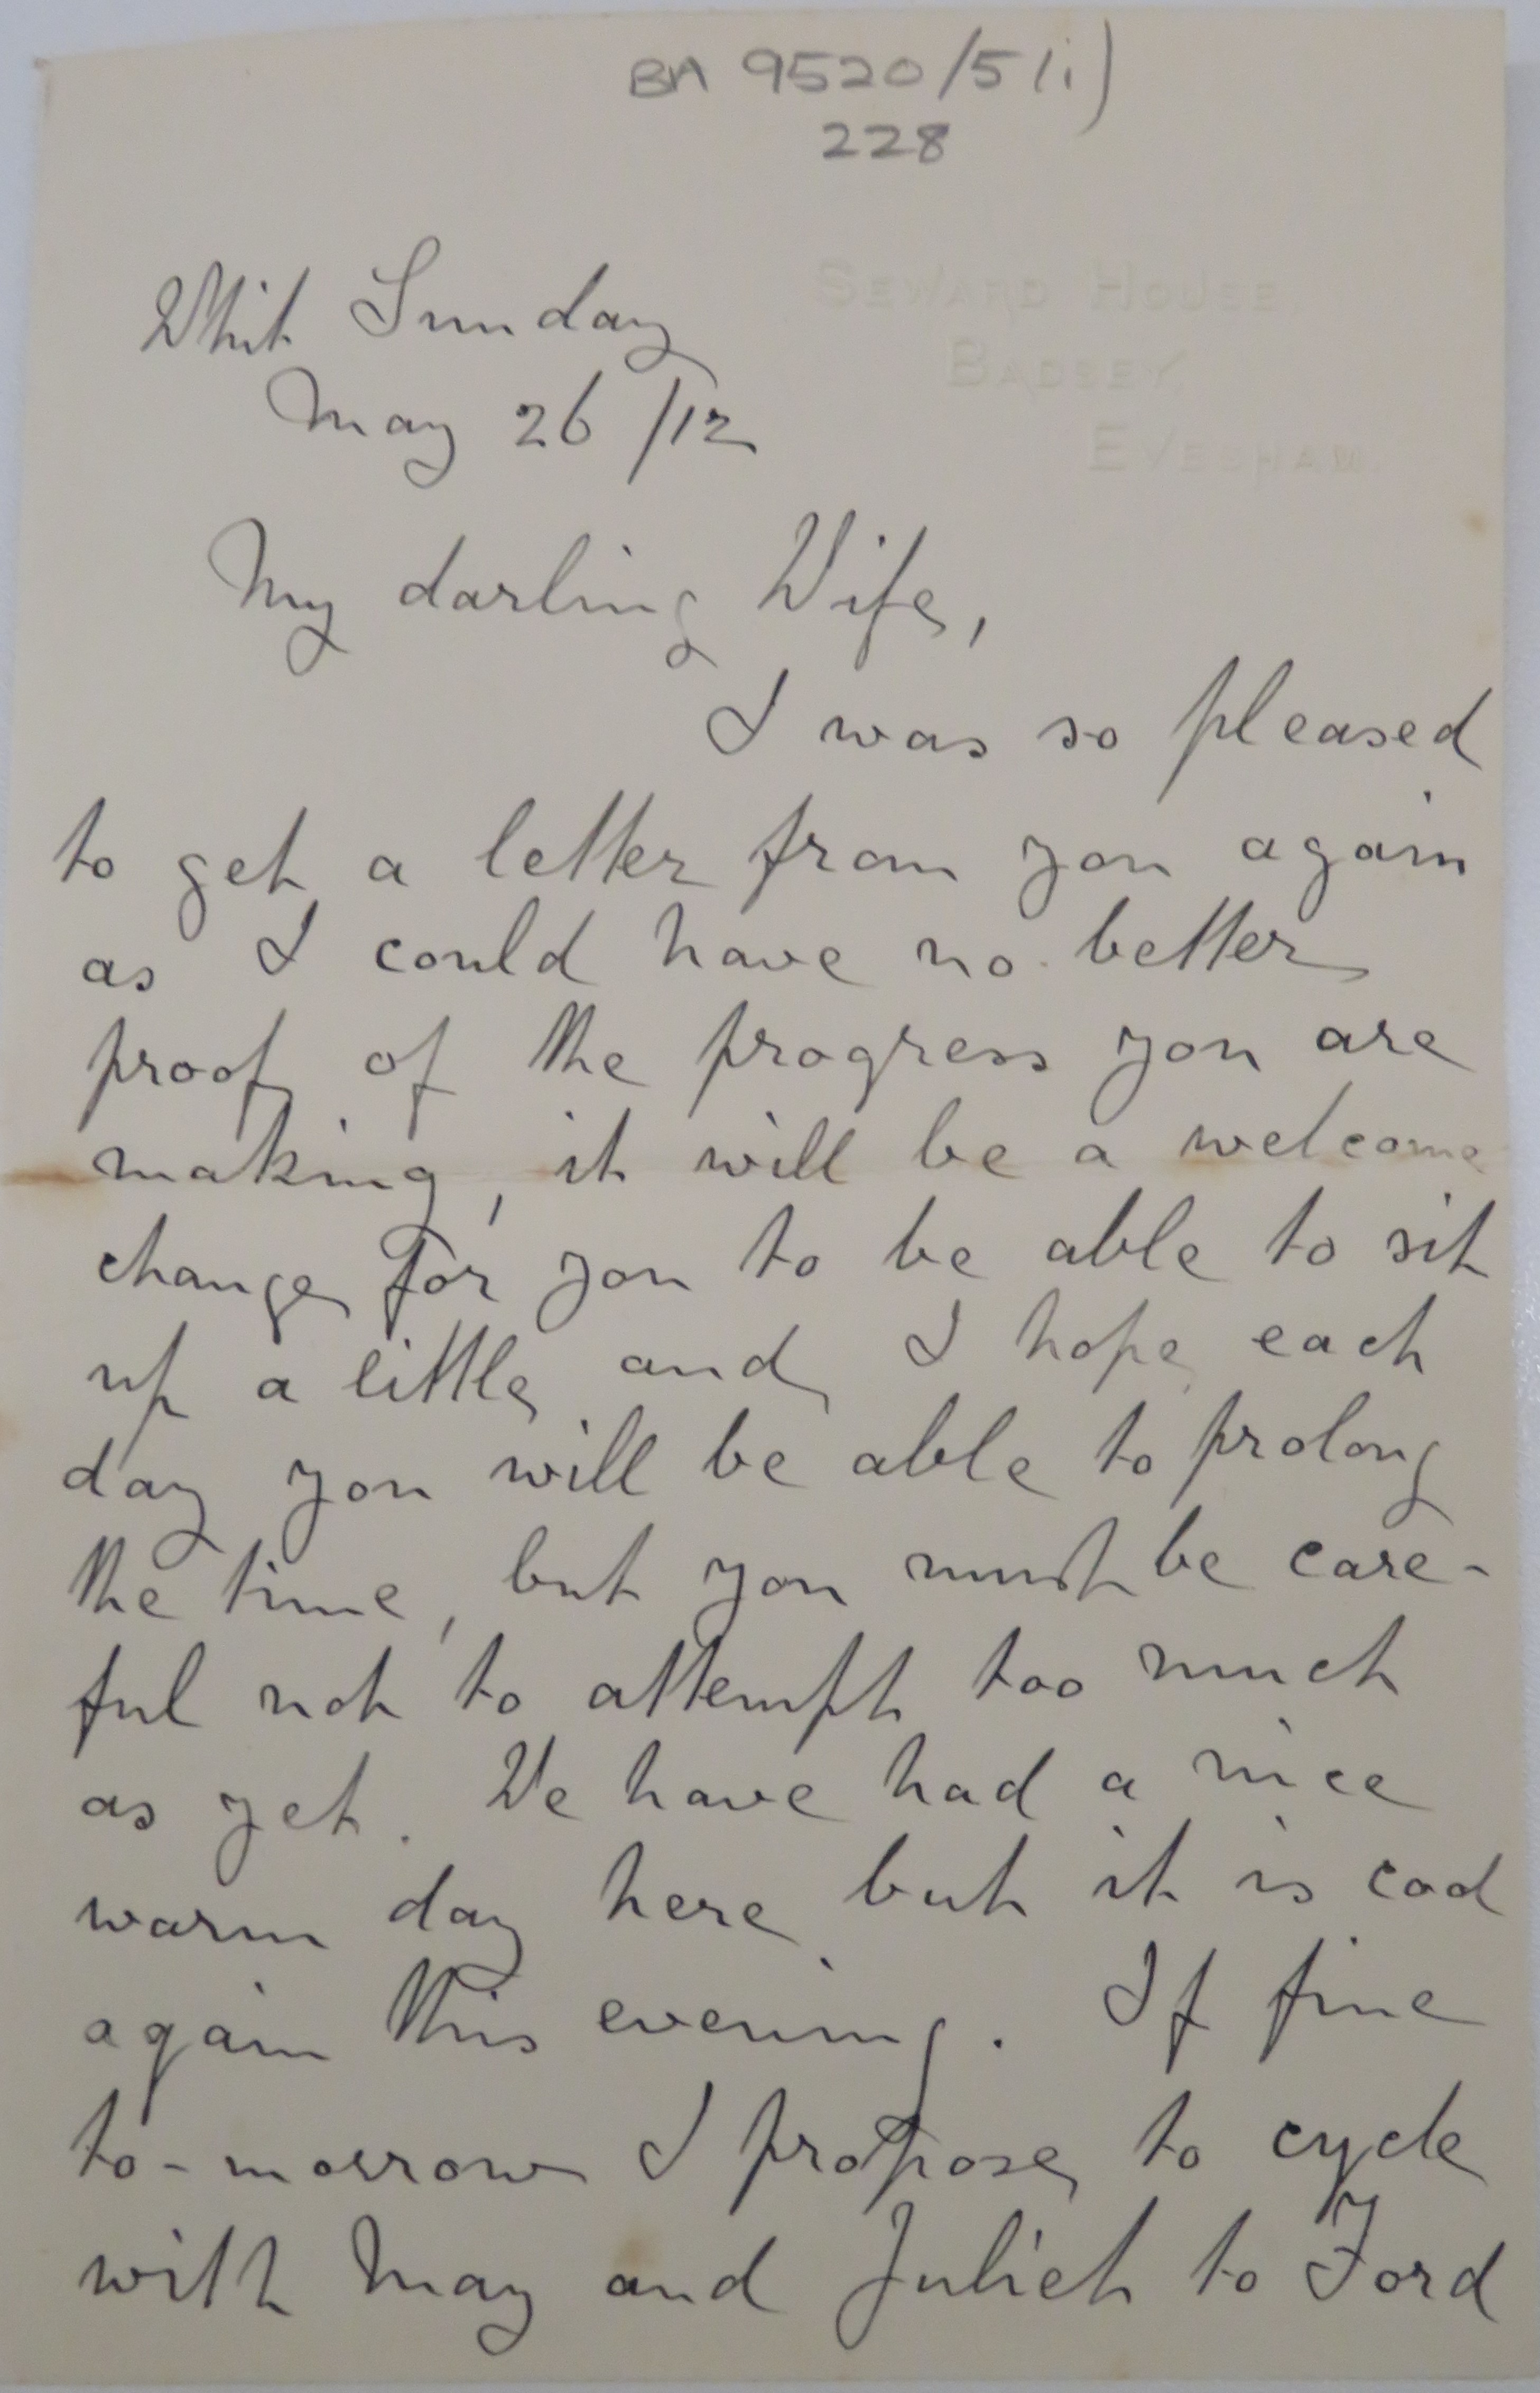 BA 9520/5 (i)
228
SEWARD HOUSE,
BADSEY,
EVESHAM.
Whit Sunday
May 26/12
My darling Wife,
I was so pleased
to get a letter from you again
as I could have no better
proof of the progress you are
making, it will be a welcome
change for you to be able to sit
up a little and I hope each
day you will be able to prolong
the time, but you must be care-
ful not to attempt too much
as yet. We have had a nice
warm day here but it is cool
again this evening. If fine
to-morrow I propose to cycle
with May and Juliet to Ford